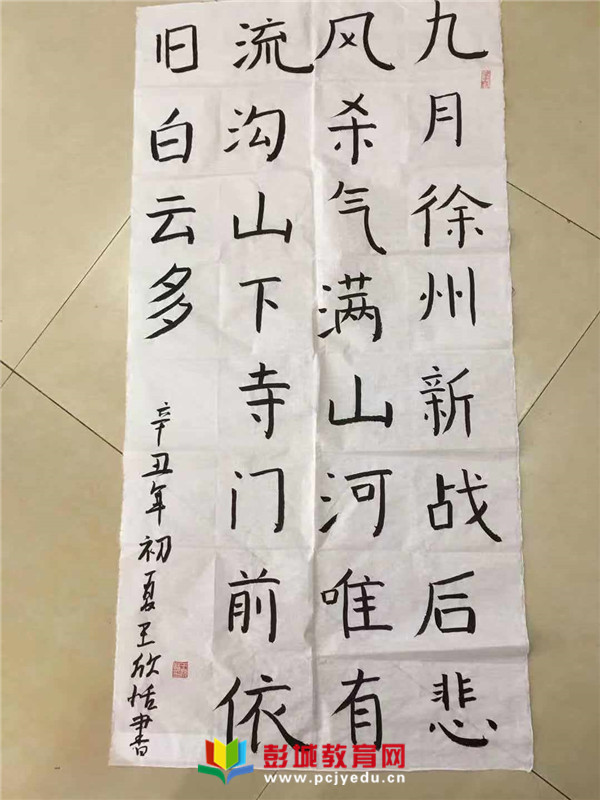 九月徐州新战后悲
风杀气满山河唯有
流沟山下寺门前依
旧白云多
辛丑年初夏王欣恬书
彭城教育网
www.pcjyedu.cn